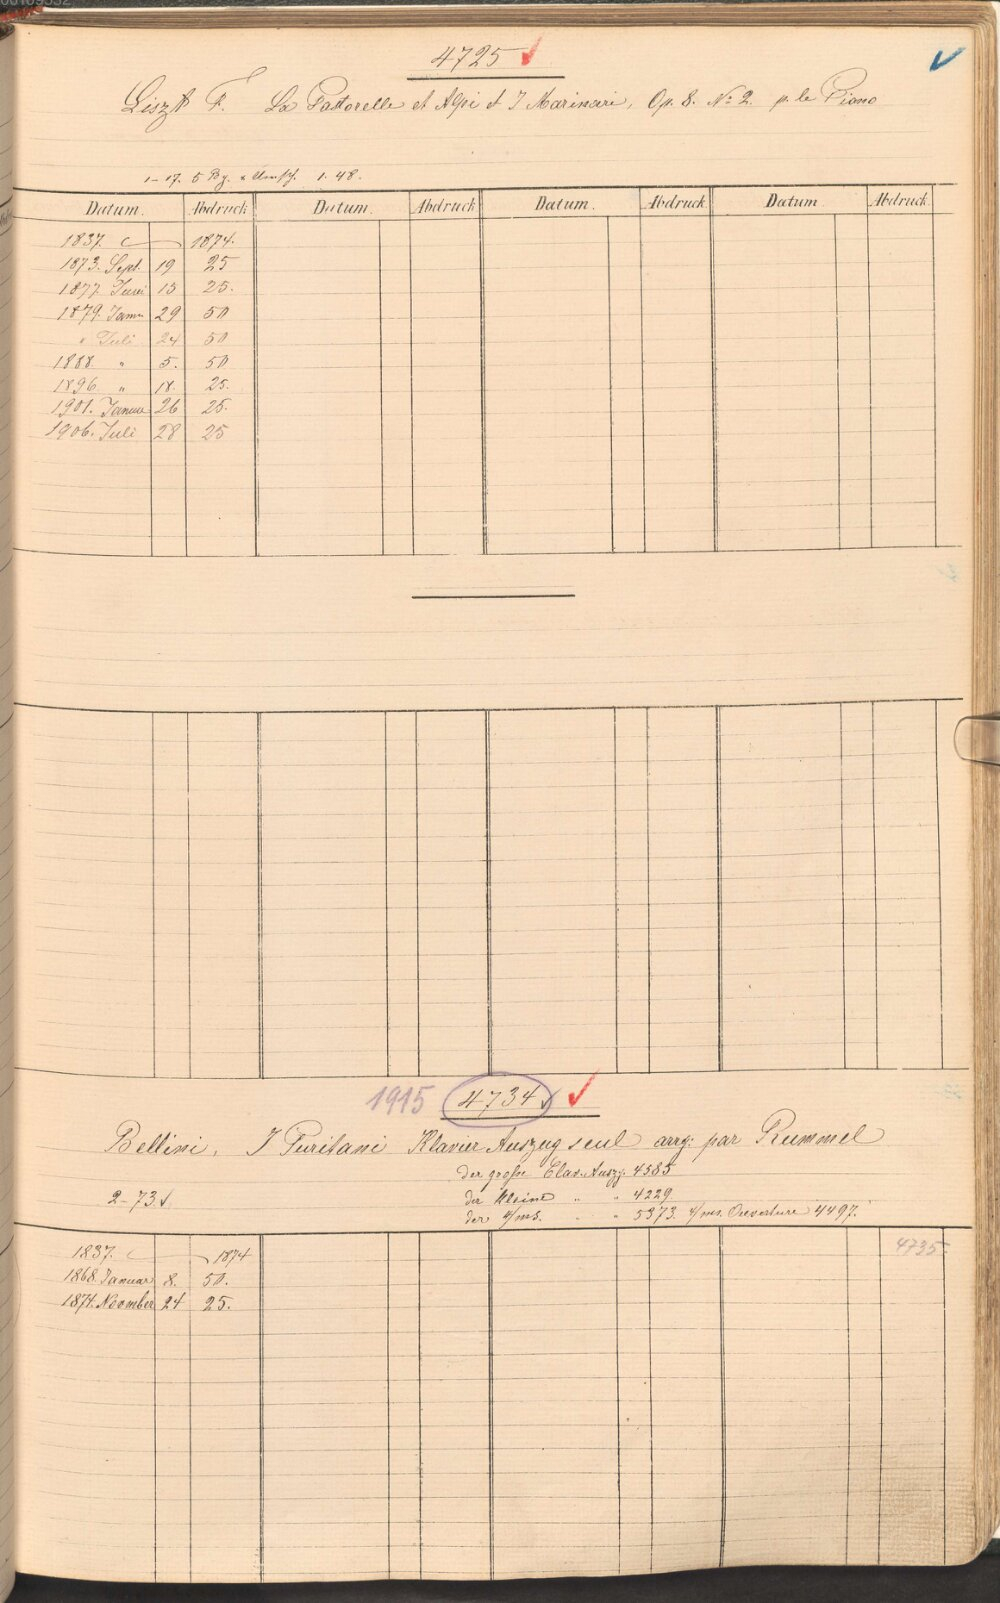 4725 ✓
Liszt F. La Pastorelle et Alpi et I Marinari, Op. 8. No 2. p. le Piano
1-17. 5 Bg. + Umschl. 1. 48.
Datum. Abdruck Datum. Abdruck Datum. Abdruck Datum Abdruck
1837. 1874.
1873. Sept. 19 25
1877. Juni 15 25.
1879. Janu 29 50
" Juli 24 50
1888. " 5. 50
1896. " 18. 25.
1901. Januar 26 25.
1906. Juli 28 25
1915 4734 ✓
Bellini, I Puritani Klavier Auszug seul arrg: par Rummel
der große Clav. Auszg. 4585
2-73. der kleine " " 4229
der 4/ms. " " 5373. 4/ms. Ouverture 4497.
1837. 1874 4735
1868. Januar 8. 50.
1874. November 24 25.